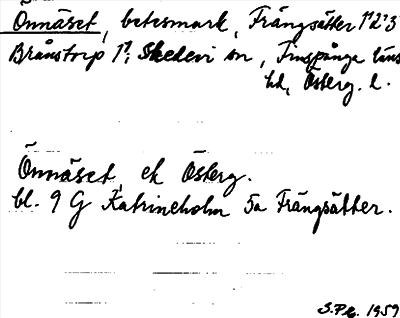 Önnäset, betesmark, Frängsätter 1¹2¹3¹
Brånstorp 1¹, Skedevi sn, Finspånga läns
hd, Österg. l.
Önnäset, ek Österg.
bl. 9 G Katrineholm 5a Frängsätter.
S.P.B. 1959